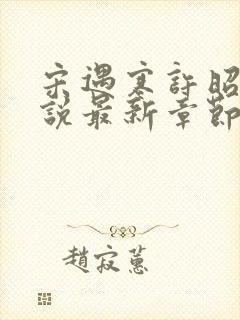 宋遇寒許昭
説最新章節
趙寂蕙